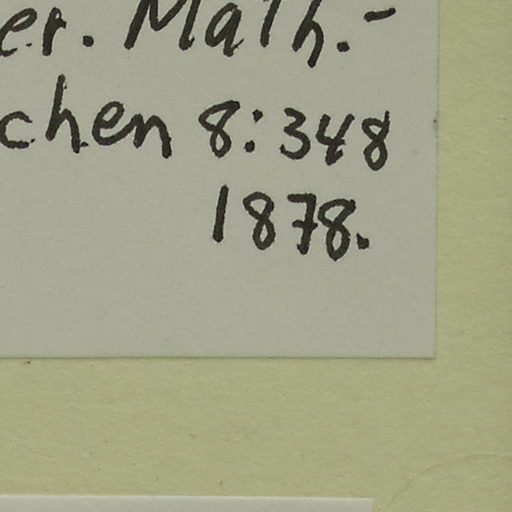 er. Math.-
chen 8:348
1878.